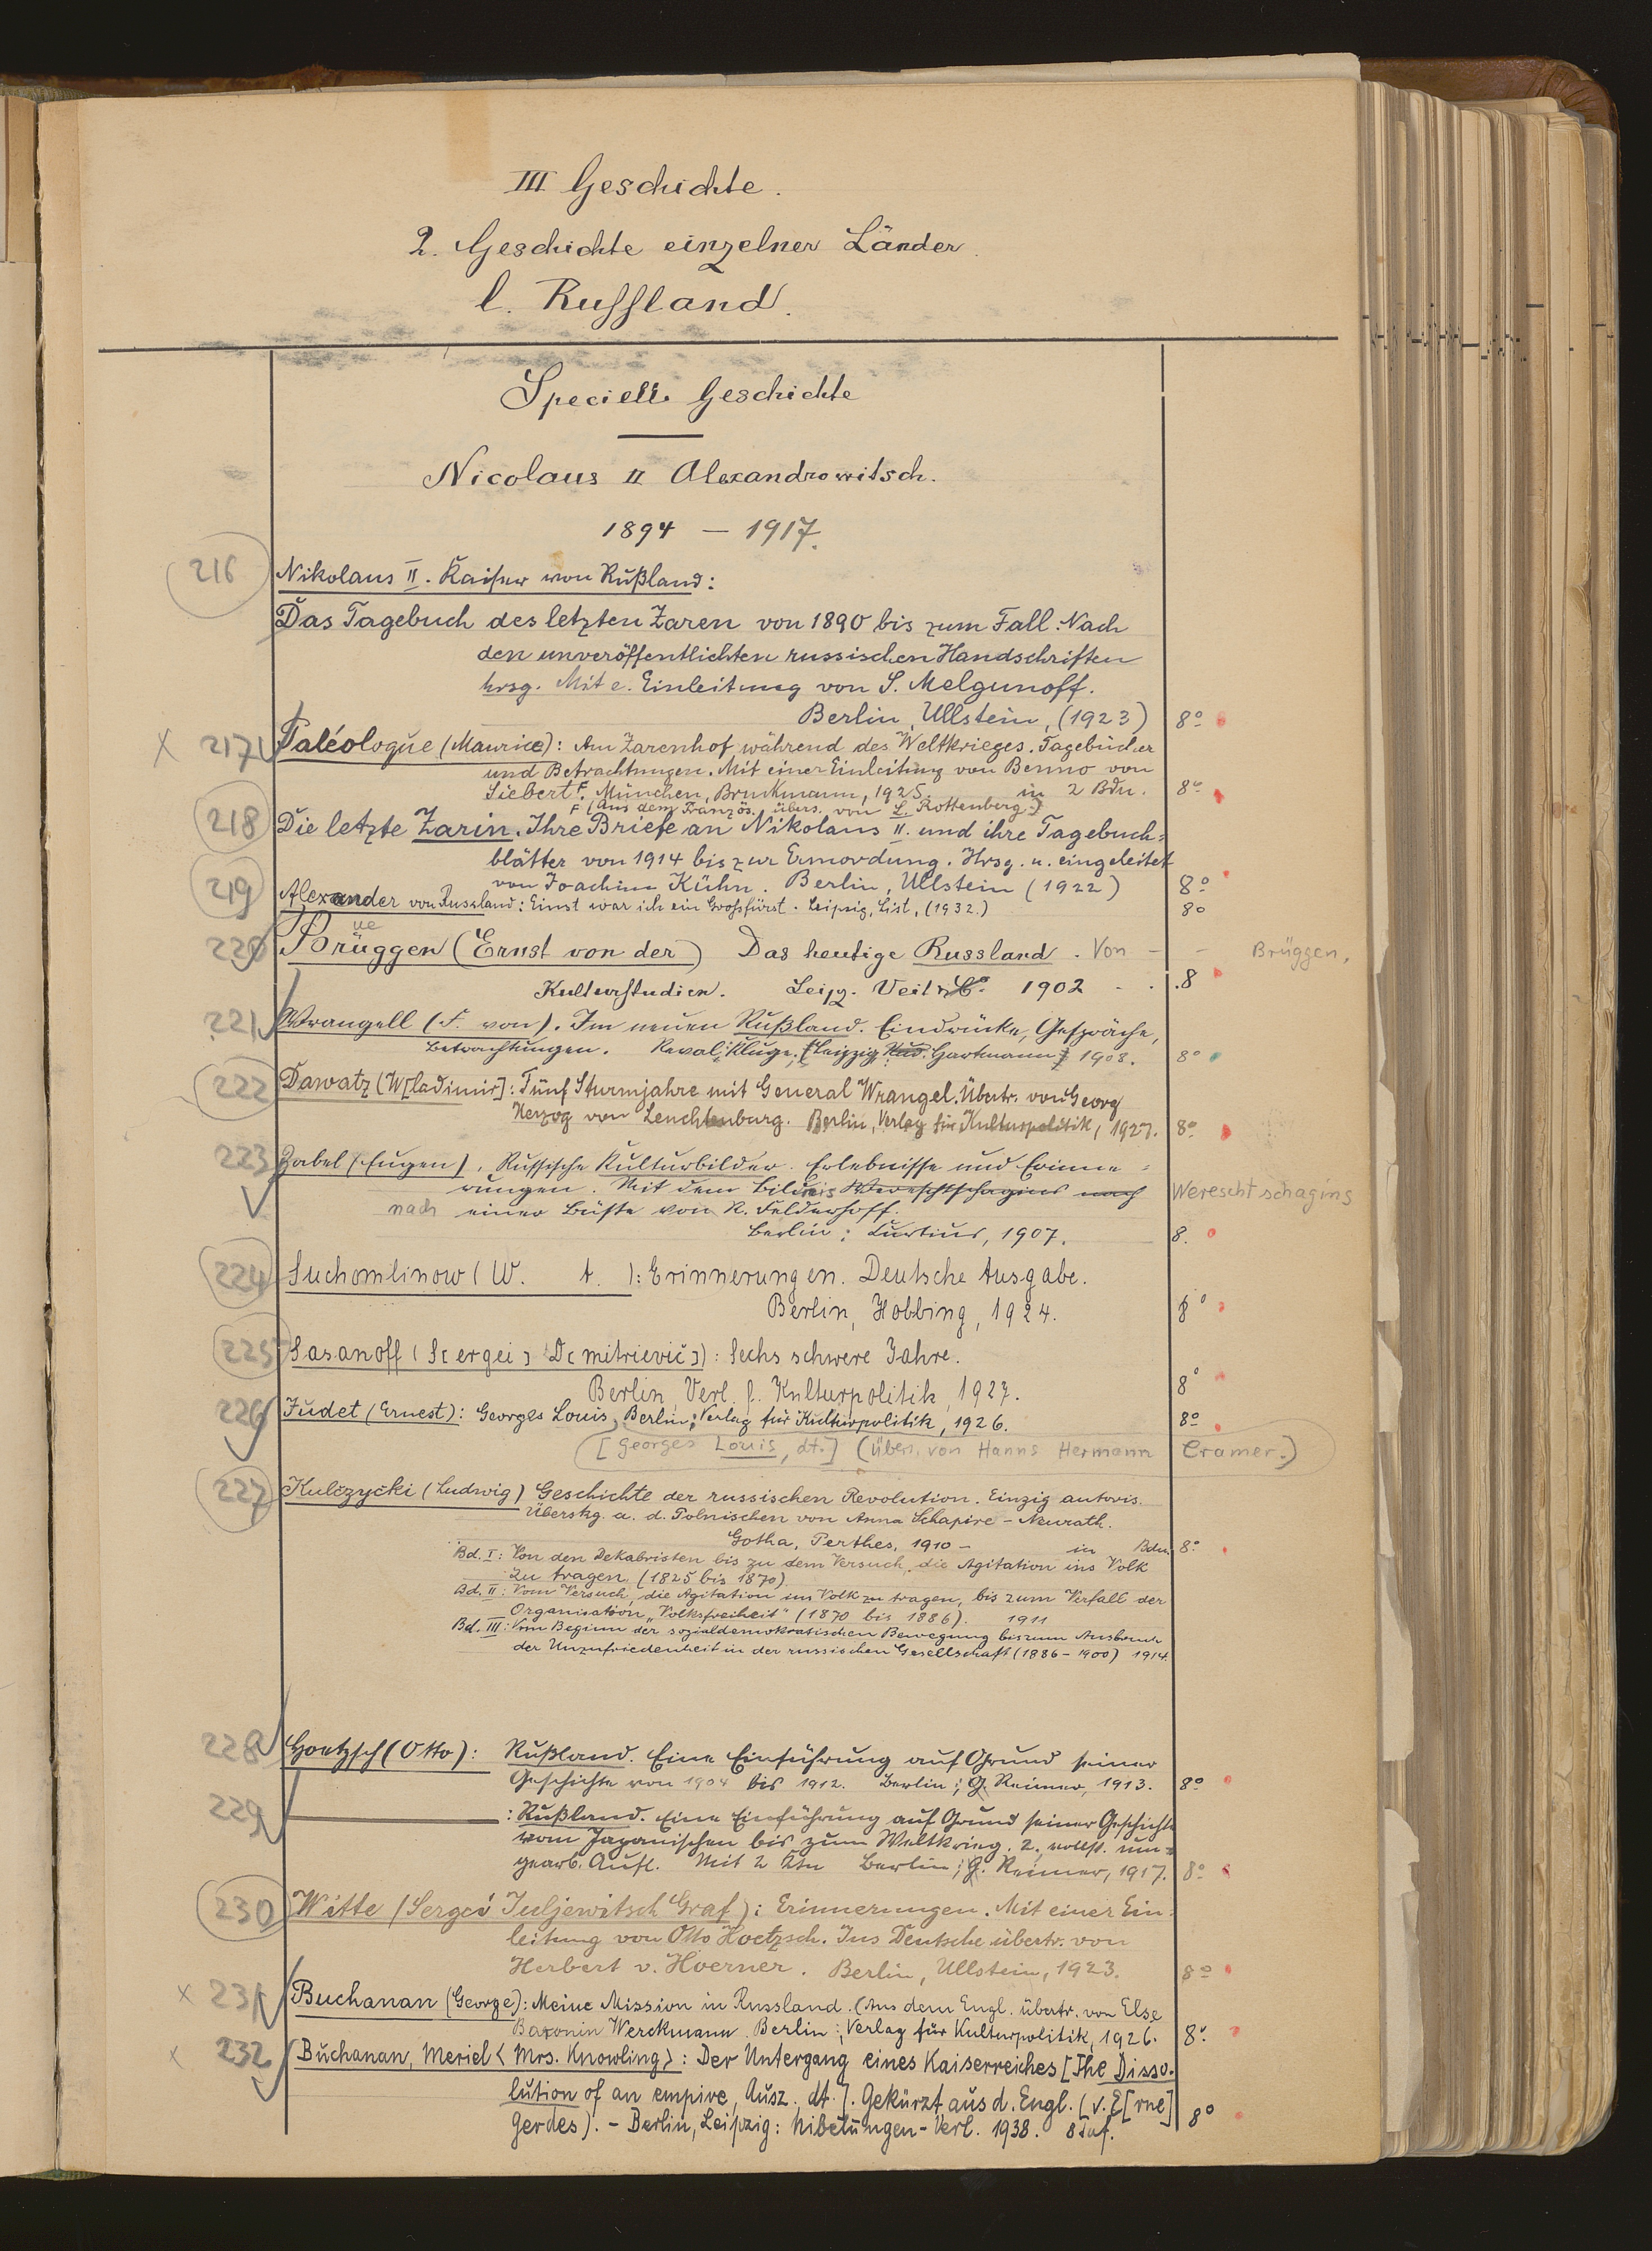 III Geschichte.
2. Geschichte einzelner Länder.
l. Russland.
Specielle Geschichte
Nicolaus II Alexandrowitsch.
1894 — 1917.
216 Nikolaus II. Kaiser von Rußland:
Das Tagebuch des letzten Zaren von 1890 bis zum Fall. Nach
den unveröffentlichten russischen Handschriften
hrsg. Mit e. Einleitung von S. Melgunoff.
Berlin, Ullstein, (1923) 8º
x 217 Paléologue (Maurice): Am Zarenhof während des Weltkrieges. Tagebücher
und Betrachtungen. Mit einer Einleitung von Benno von
Siebert F. München, Bruckmann, 1925. in 2 Bdn. 8º
F (Aus dem Französ. übers. von L. Rottenberg.)
218 Die letzte Zarin. Ihre Briefe an Nikolaus II. und ihre Tagebuch=
blätter von 1914 bis zur Ermordung. Hrsg. u. eingeleitet
von Joachim Kühn. Berlin, Ullstein (1922) 8º
219 Alexander von Russland: Einst war ich ein Großfürst. Leipzig, List, (1932.) 8º
ue
220 Brüggen (Ernst von der) Das heutige Russland. Von - - Brüggen.
Kulturstudien. Leipz. Veit & Co. 1902 - . .8
221 Wrangell (F. von). Im neuen Rußland. Eindrücke, Gespräche,
Betrachtungen. Reval: Kluge; (Leipzig, Rud. Hartmann) 1908. 8º
222 Dawatz (W[ladimir]: Fünf Sturmjahre mit General Wrangel. Übertr. von Georg
Herzog von Leuchtenburg. Berlin, Verlag für Kulturpolitik, 1927. 8º
223 Zabel (Eugen), Russische Kulturbilder. Erlebnisse und Erinne=
rungen. Mit dem Bildnis Wereschtschagins nach Werescht schagins
nach einer Büste von N. Felderhoff.
Berlin: Curtius, 1907. 8.
224 Suchomlinow (W. A. ): Erinnerungen. Deutsche Ausgabe.
Berlin, Hobbing, 1924. 8º
225 Sasanoff (S[ergei] D[mitrievič]): Sechs schwere Jahre.
Berlin, Verl. f. Kulturpolitik, 1927. 8º
226 Judet (Ernest): Georges Louis, Berlin: Verlag für Kulturpolitik, 1926. 8º
[Georges Louis, dt.] (Übers. von Hanns Hermann Cramer.)
227 Kulczycki (Ludwig) Geschichte der russischen Revolution. Einzig autoris.
Überstzg. a. d. Polnischen von Anna Schapire-Neurath.
Gotha, Perthes, 1910 - in Bdn. 8º
Bd. I: Von den Dekabristen bis zu dem Versuch, die Agitation ins Volk
zu tragen. (1825 bis 1870)
Bd. II: Vom Versuch, die Agitation ins Volk zu tragen, bis zum Verfall der
Organisation „Volksfreiheit" (1870 bis 1886). 1911
Bd. III: Vom Beginn der sozialdemokratischen Bewegung bis zum Ausbruch
der Unzufriedenheit in der russischen Gesellschaft (1886-1900) 1914.
228 Hoetzsch (Otto): Rußland. Eine Einführung auf Grund seiner
Geschichte von 1904 bis 1912. Berlin: G. Reimer, 1913. 8º
229 : Rußland. Eine Einführung auf Grund seiner Geschichte
vom Japanischen bis zum Weltkrieg. 2. vollst. um=
gearb. Aufl. Mit 2 Ktn Berlin: G. Reimer, 1917. 8º
230 Witte (Sergei Juljewitsch Graf): Erinnerungen. Mit einer Ein=
leitung von Otto Hoetzsch. Ins Deutsche übertr. von
Herbert v. Hoerner. Berlin, Ullstein, 1923. 8º
x 231 Buchanan (George): Meine Mission in Russland. (Aus dem Engl. übertr. von Else
Baronin Werckmann. Berlin: Verlag für Kulturpolitik, 1926. 8º
x 232 Buchanan, Meriel < Mrs. Knowling>: Der Untergang eines Kaiserreiches [The Disso-
lution of an empire, Ausz., dt.]. Gekürzt aus d. Engl. (v. E[rne]
Gerdes). - Berlin, Leipzig: Nibelungen-Verl. 1938. 8 Taf. 8º